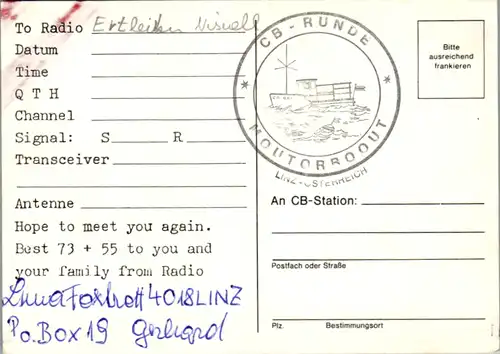 To Radio Ertleiten Visuell
Datum
Time
Q T H
Channel
Signal: S R
Transceiver
Antenne
Hope to meet you again.
Best 73 + 55 to you and
your family from Radio
Lima Foxtrott 4018 LINZ
Po.Box 19 Gerhard
CB-RUNDE
MOUTORROOUT
LINZ-ÖSTERREICH
Bitte
ausreichend
frankieren
An CB-Station:
Postfach oder Straße
Plz. Bestimmungsort